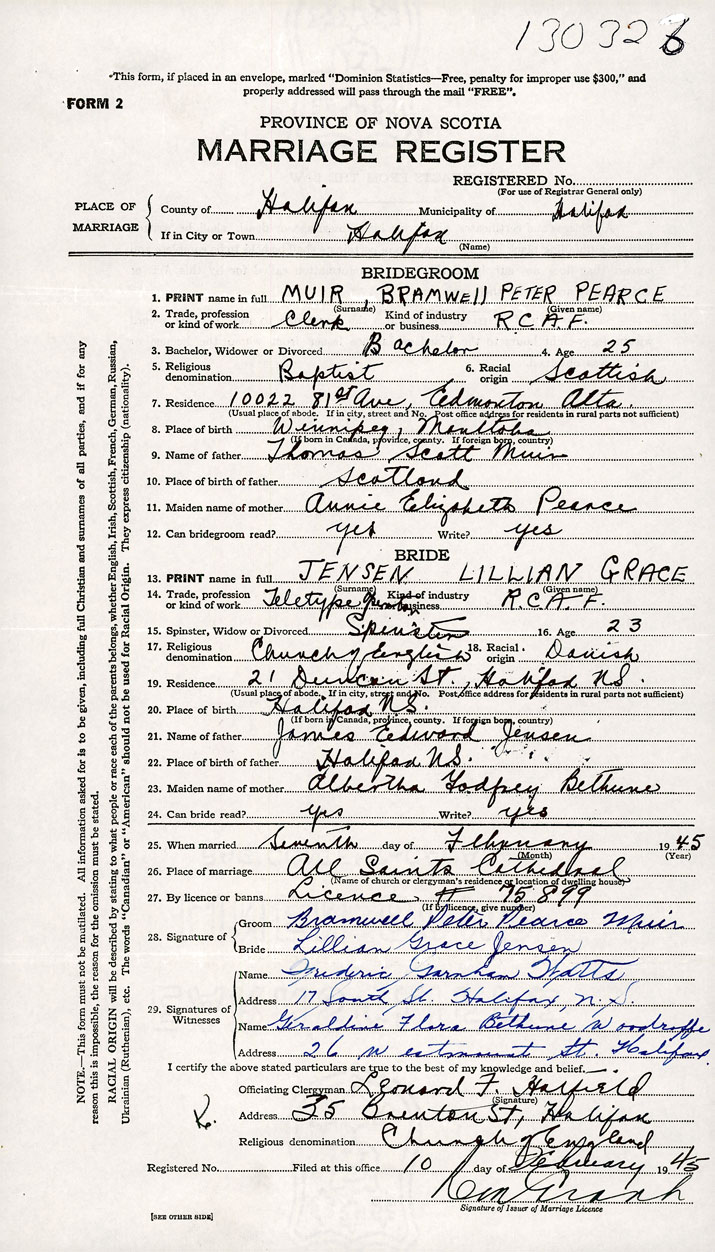 130326
*This form, if placed in an envelope, marked "Dominion Statistics—Free, penalty for improper use $300," and
properly addressed will pass through the mail "FREE".
FORM 2
PROVINCE OF NOVA SCOTIA
MARRIAGE REGISTER
REGISTERED No.
(For use of Registrar General only)
PLACE OF MARRIAGE
County of Halifax Municipality of Halifax
If in City or Town Halifax
(Name)
BRIDEGROOM
1. PRINT name in full MUIR, BRAMWELL PETER PEARCE
(Surname) (Given name)
2. Trade, profession or kind of work Clerk Kind of industry or business R.C.A.F.
3. Bachelor, Widower or Divorced Bachelor 4. Age 25
5. Religious denomination Baptist 6. Racial origin Scottish
7. Residence 10022 81st Ave, Edmonton Alta.
(Usual place of abode. If in city, street and No. Post office address for residents in rural parts not sufficient)
8. Place of birth Winnipeg, Manitoba
(If born in Canada, province, county. If foreign born, country)
9. Name of father Thomas Scott Muir
10. Place of birth of father Scotland
11. Maiden name of mother Annie Elizabeth Pearce
12. Can bridegroom read? yes Write? yes
BRIDE
13. PRINT name in full JENSEN LILLIAN GRACE
(Surname) (Given name)
14. Trade, profession or kind of work Teletype Kind of industry or business R.C.A.F.
15. Spinster, Widow or Divorced Spinster 16. Age 23
17. Religious denomination Church of English 18. Racial origin Danish
19. Residence 21 Duncan St., Halifax NS.
(Usual place of abode. If in city, street and No. Post office address for residents in rural parts not sufficient)
20. Place of birth Halifax N.S.
(If born in Canada, province, county. If foreign born, country)
21. Name of father James Edward Jensen
22. Place of birth of father Halifax N.S.
23. Maiden name of mother Albertha Godfrey Bethune
24. Can bride read? yes Write? yes
25. When married Seventh day of February 1945
(Month) (Year)
26. Place of marriage All Saints Cathedral
(Name of church or clergyman's residence or location of dwelling house)
27. By licence or banns Licence # 75899
(If by licence, give number)
28. Signature of
Groom Bramwell Peter Pearce Muir
Bride Lillian Grace Jensen
29. Signatures of Witnesses
Name Frederic Garnham Watts
Address 17 South St. Halifax, N.S.
Name Geraldine Flora Bethune Woodroffe
Address 26 Westmount St. Halifax
I certify the above stated particulars are true to the best of my knowledge and belief.
Officiating Clergyman Leonard F. Hatfield
(Signature)
Address 35 Brenton St, Halifax
Religious denomination Church of England
Registered No. Filed at this office 10 day of February 1945
Signature of Issuer of Marriage Licence
[SEE OTHER SIDE]
NOTE.—This form must not be mutilated. All information asked for is to be given, including full Christian and surnames of all parties, and if for any
reason this is impossible, the reason for the omission must be stated.
RACIAL ORIGIN will be described by stating to what people or race each of the parents belongs, whether English, Irish, Scottish, French, German Russian,
Ukrainian (Ruthenian), etc. The words "Canadian" or "American" should not be used for Racial Origin. They express citizenship (nationality).